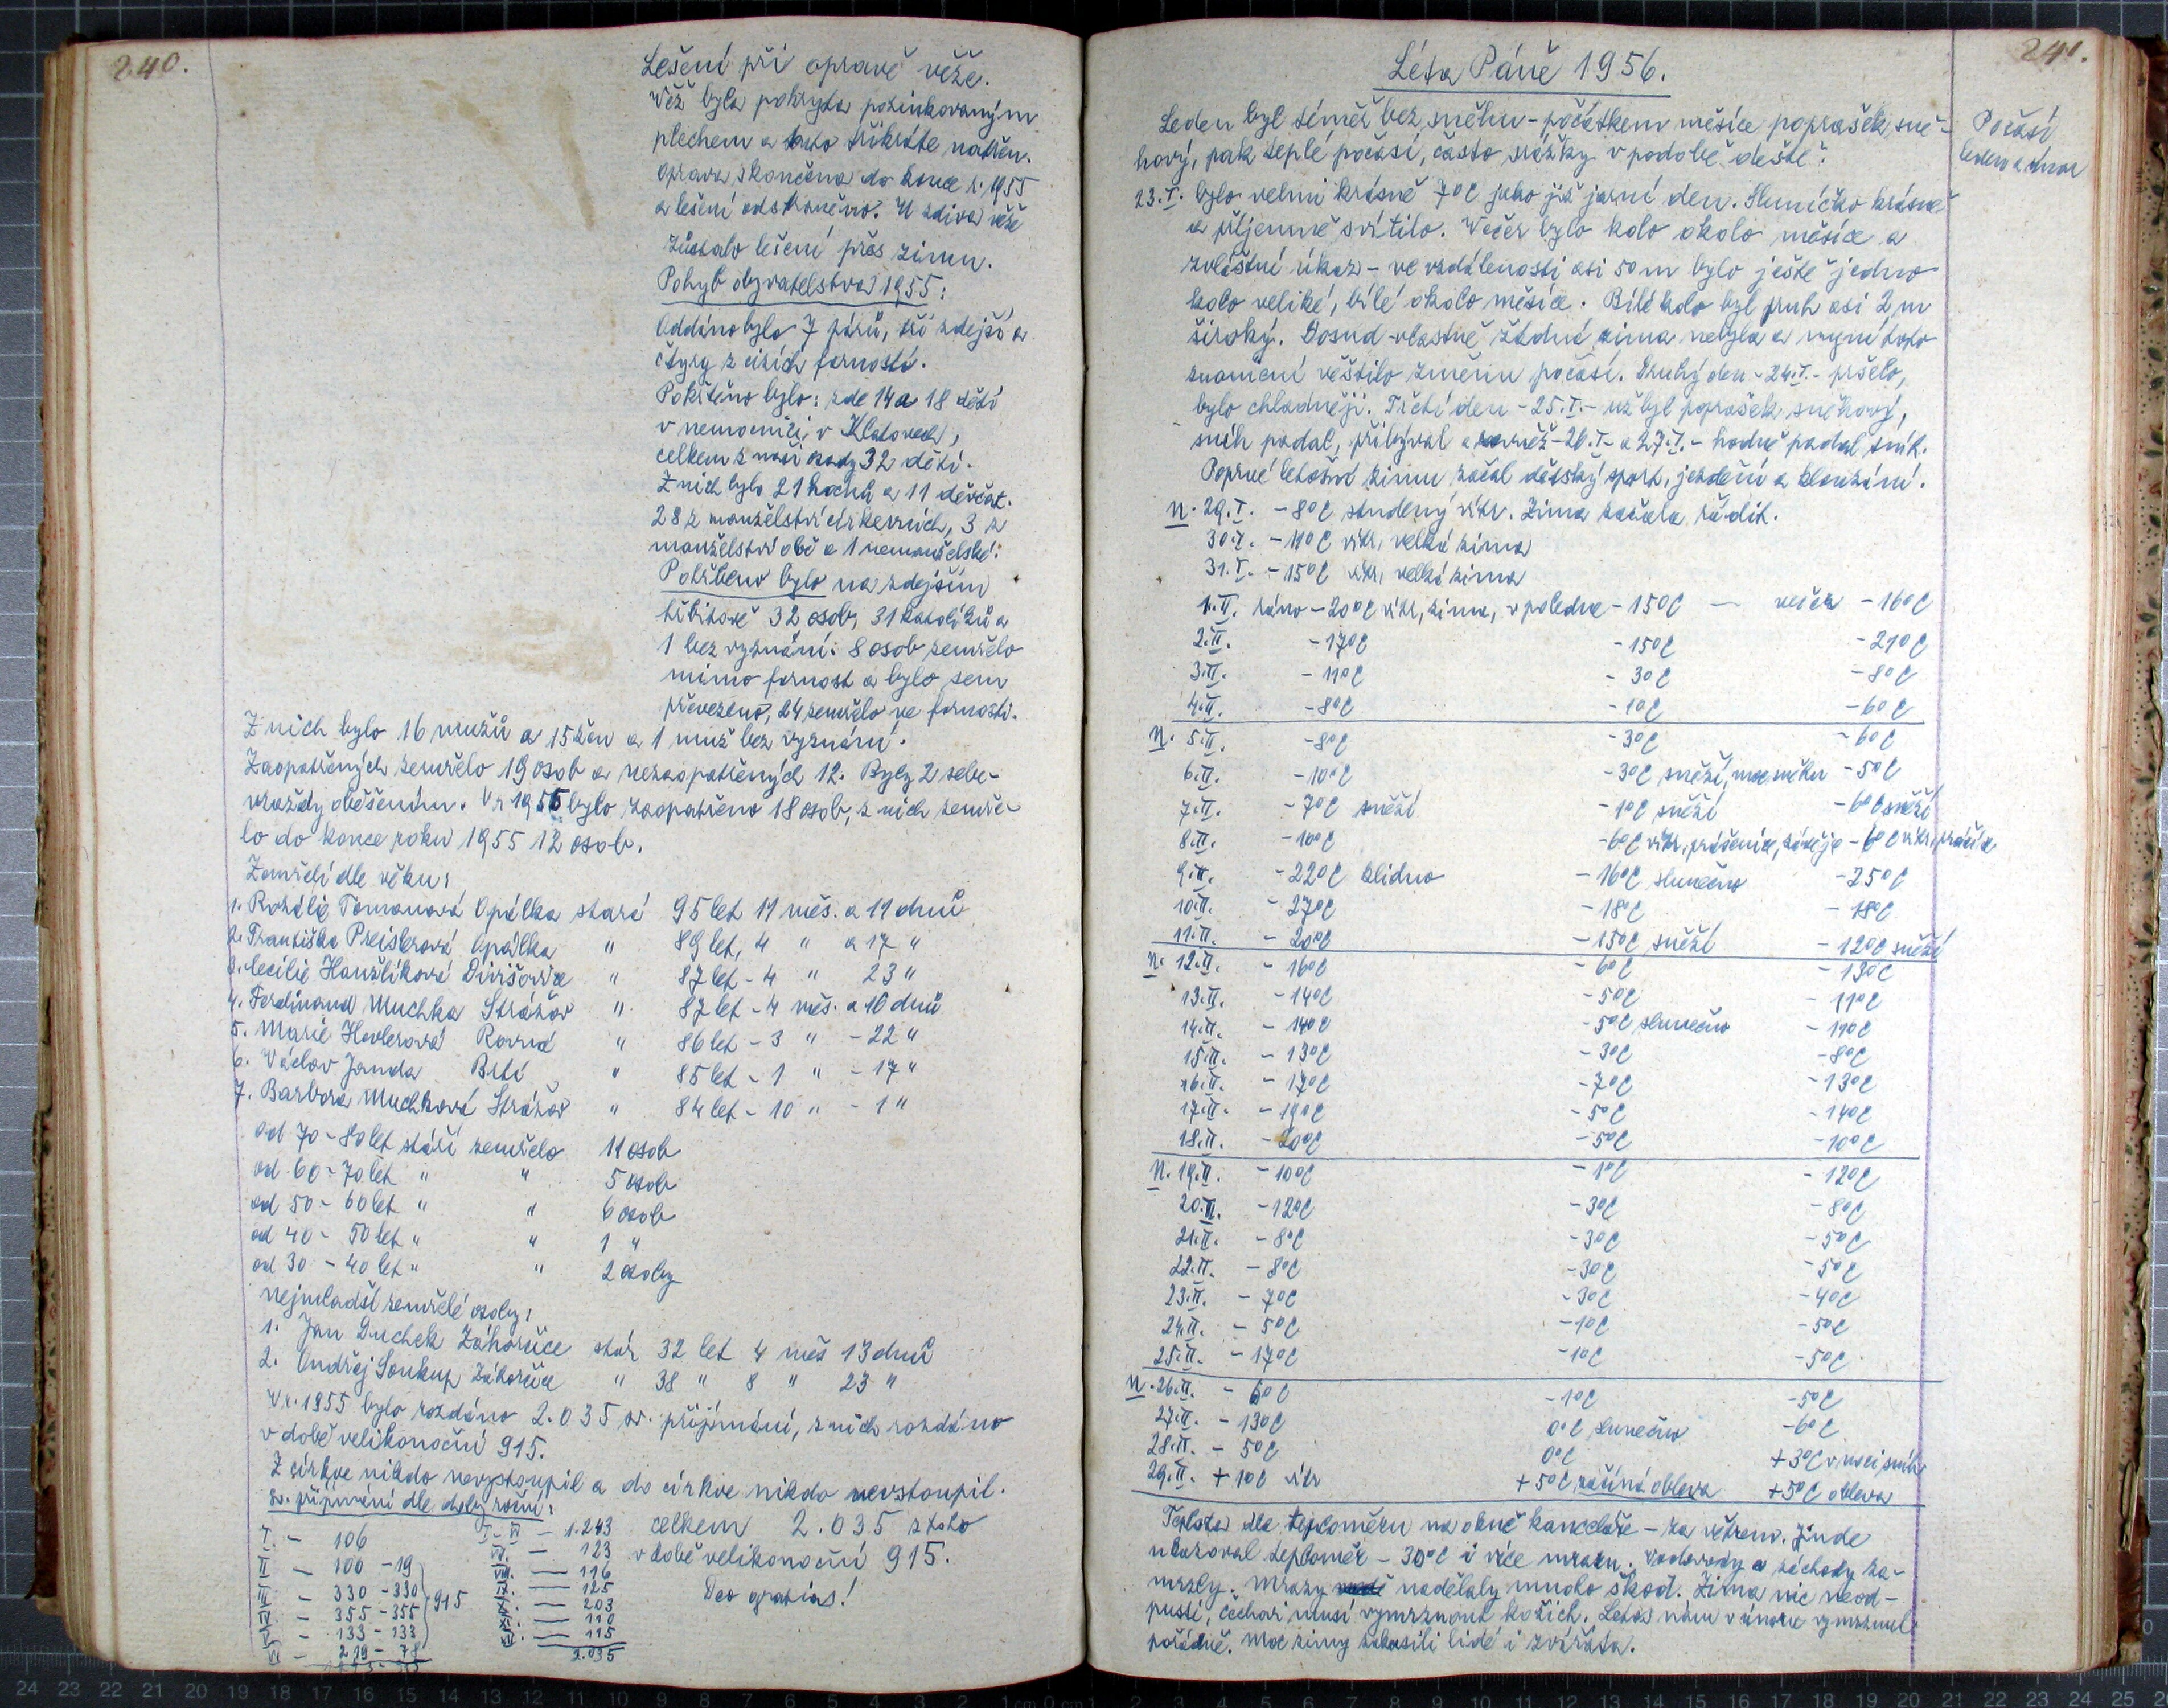 240.
Lešení při opravě věže.
Věž byla pokryta pozinkovaným
plechem a tento třikráte natřen.
Oprava skončena do konce r. 1955
a lešení odstraněno. U zdiva věže
zůstalo lešení přes zimu.
Pohyb obyvatelstva 1955:
Oddáno bylo 7 párů, tři zdejší a
čtyry z cizích farností.
Pokřtěno bylo: zde 14 a 18 dětí
v nemocnici v Klatovech,
celkem z naší osady 32 dětí.
Z nich bylo 21 hochů a 11 děvčat.
28 z manželství církevních, 3 z
manželství obč a 1 nemanželské.
Pohřbeno bylo na zdejším
hřbitově 32 osob, 31 katolíků a
1 bez vyznání: 8 osob zemřelo
mimo farnost a bylo sem
převezeno, 24 zemřelo ve farnosti.
Z nich bylo 16 mužů a 15 žen a 1 muž bez vyznání.
Zaopatřených zemřelo 19 osob a nezaopatřených 12. Byly 2 sebe-
vraždy oběšením. V r 1955 bylo zaopatřeno 18 osob, z nich zemře-
lo do konce roku 1955 12 osob.
Zemřelí dle věku:
1. Rozálie Tomanová Opálka stará 95 let 11 měs. a 11 dnů
2. Františka Preislerová Opálka " 89 let, 4 " a 17 "
3. Cecilie Hanzlíková Divišovice " 87 let - 4 " 23 "
4. Ferdinand Muchka Strážov " 87 let - 4 měs. a 16 dnů
5. Marie Rovná " 86 let - 3 " - 22 "
6. Václav Janda Brtí " 85 let - 1 " - 17 "
7. Barbora Muchková Strážov " 84 let - 10 " - 1 "
od 70 - 80 let stáří zemřelo 11 osob
od 60 - 70 let " " 5 osob
od 50 - 60 let " " 6 osob
od 40 - 50 let " " 1 "
od 30 - 40 let " " 2 osoby
nejmladší zemřelé osoby:
1. Jan Duchek Záhorčice stár 32 let 4 měs 13 dnů
2. Ondřej Soukup Záhorčice " 38 " 8 " 23 "
V r. 1955 bylo rozdáno 2.035 sv. přijímání, z nich rozdáno
v době velikonoční 915.
Z církve nikdo nevystoupil a do církve nikdo nevstoupil.
sv. přijímání dle doby roční:
I. - 106
II - 100 - 19
III - 330 - 330
IV - 355 - 355
V - 133 - 133
VI - 219 - 78
915
I - VI - 1.243
VII. - 123
VIII. - 116
IX. - 125
X. - 203
XI. - 110
XII. - 115
2.035
celkem 2.035 z toho
v době velikonoční 915.
Deo gratias!
241.
Léta Páně 1956.
Počasí
leden a únor
Leden byl téměř bez sněhu - počátkem měsíce poprašek sně-
hový, pak teplé počasí, často srážky v podobě deště.
23.I. bylo velmi krásně 7°C jako již jarní den. Sluníčko krásně
a příjemně svítilo. Večer bylo kolo okolo měsíce a
zvláštní úkaz - ve vzdálenosti asi 50 m bylo ještě jedno
kolo veliké, bílé okolo měsíce. Bílé kolo byl pruh asi 2 m
široký. Dosud vlastně žádná zima nebyla a nyní toto
znamení věštilo změnu počasí. Druhý den - 24.I. - pršelo,
bylo chladněji. Třetí den - 25.I. - už byl poprašek sněhový,
sníh padal, přibýval a rovněž - 26.I. a 27.I. - hodně padal sníh.
Poprvé letošní zimu začal dětský sport, jezdění a klouzání.
N. 29.I. -8°C studený vítr. Zima začala řádit.
30.I. -11°C vítr, velká zima
31.I. -15°C vítr, velká zima
1.II. ráno -20°C vítr, zima, v poledne -15°C — večer -16°C
2.II. -17°C -15°C -21°C
3.II. -11°C -3°C -8°C
4.II. -8°C -1°C -6°C
N. 5.II. -8°C -3°C -6°C
6.II. -10°C -3°C sněží, moc sněhu -5°C
7.II. -7°C sněží -1°C sněží -6°C sněží
8.II. -10°C -6°C vítr, prášenice, závěje -6°C vítr,
9.II. -22°C klidno -16°C slunečno -25°C
10.II. -27°C -18°C -18°C
11.II. -20°C -15°C sněží -12°C sněží
N. 12.II. -16°C -6°C -13°C
13.II. -14°C -5°C -11°C
14.II. -14°C -5°C slunečno -11°C
15.II. -13°C -3°C -8°C
16.II. -17°C -7°C -13°C
17.II. -19°C -5°C -14°C
18.II. -20°C -5°C -10°C
N. 19.II. -10°C -1°C -12°C
20.II. -12°C -3°C -8°C
21.II. -8°C -3°C -5°C
22.II. -8°C -3°C -5°C
23.II. -7°C -3°C -4°C
24.II. -5°C -1°C -5°C
25.II. -17°C -1°C -5°C
N. 26.II. -6°C -1°C -5°C
27.II. -13°C 0°C slunečno -6°C
28.II. -5°C 0°C +3°C v noci sníh
29.II. +1°C vítr +5°C začíná obleva +5°C obleva
Teplota dle teploměru na okně kanceláře - za větrem. Jinde
ukazoval teploměr -30°C i více mrazu. Vodovody a záchody za-
mrzly. Mrazy nadělaly mnoho škod. Zima nic neod-
pustí, čechař musí vymrznout kožich. Letos nám v únoru vymrznul
pořádně. Moc zimy zakusili lidé i zvířata.